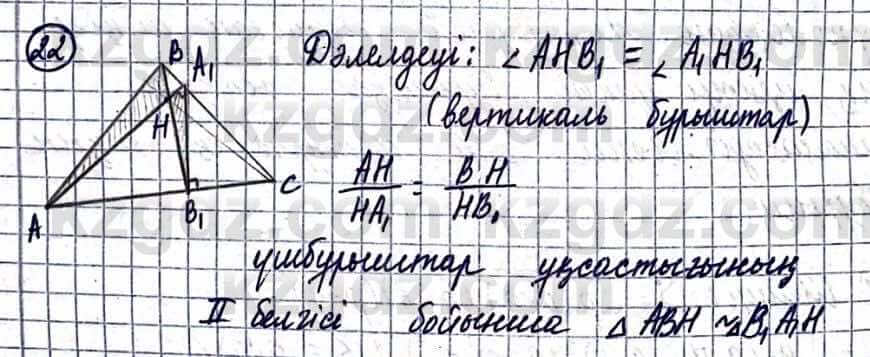 22
B
A₁
H
A
B₁
C
Дәлелдеуі: ∠AHB₁ = ∠A₁HB₁
(вертикаль бұрыштар)
AH/HA₁ = BH/HB₁
үшбұрыштар ұқсастығының
II белгісі бойынша △ABH ~ △B₁A₁H
kzgdz.com